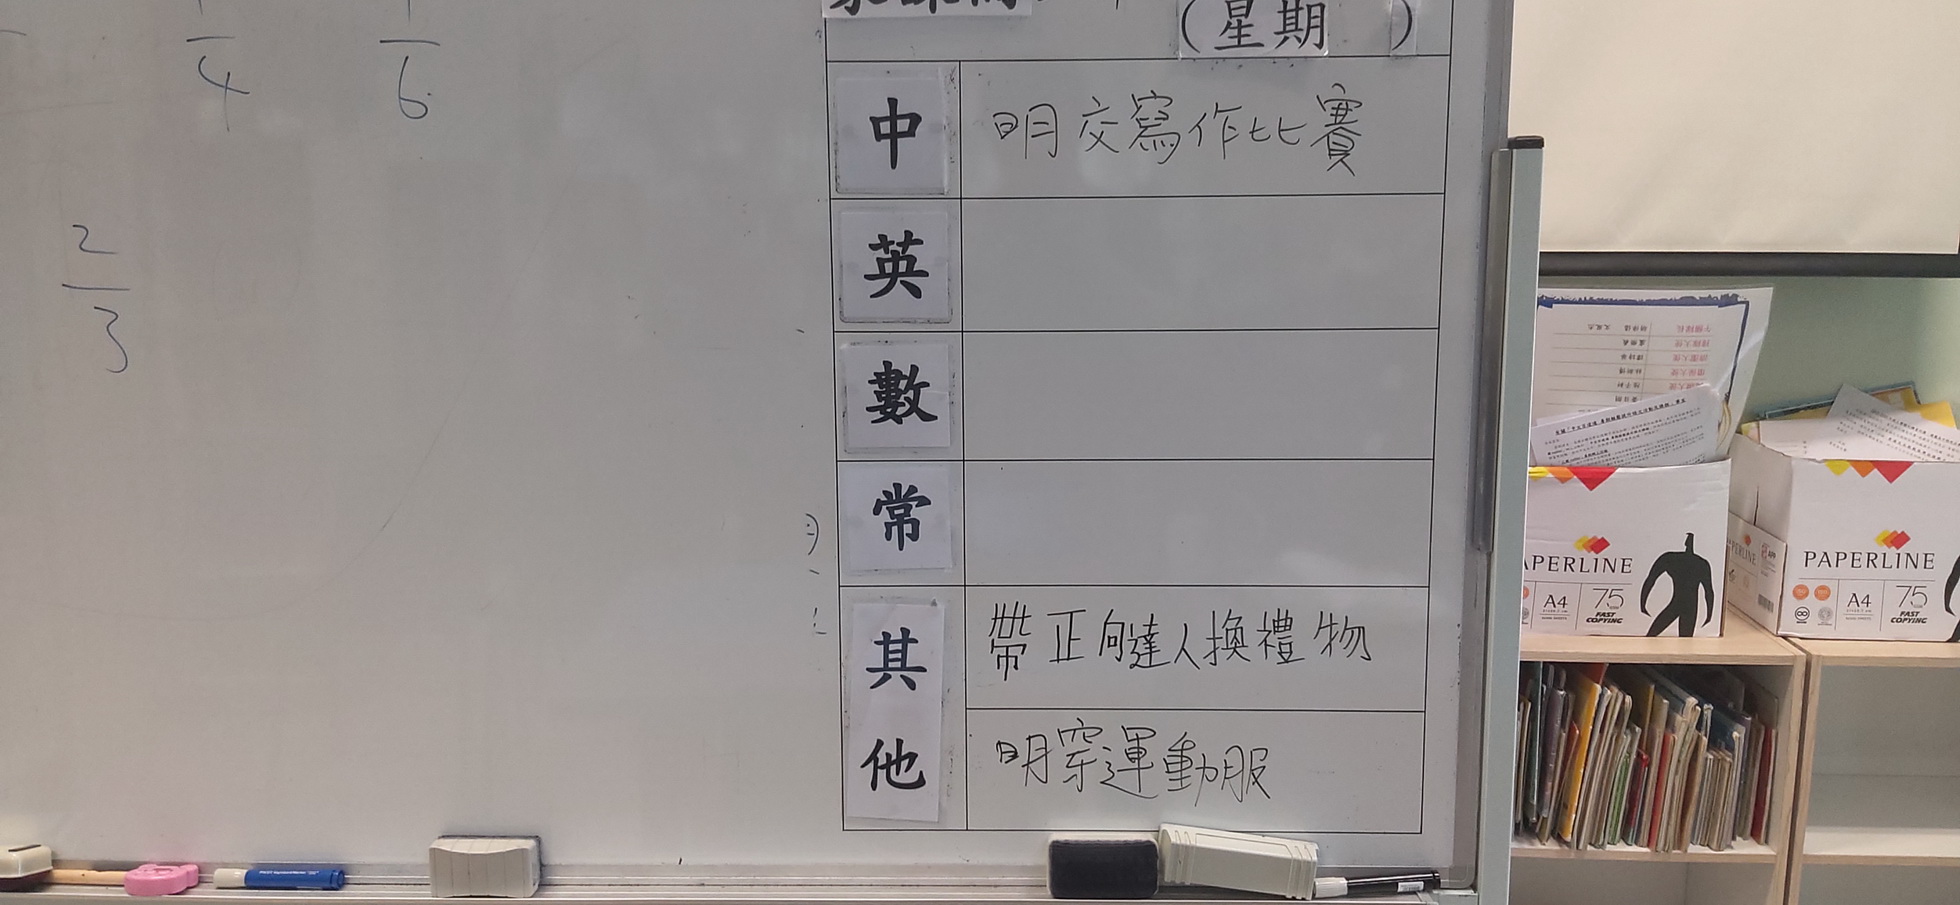 4
6
2
3
(星期 )
中 明交寫作比賽
英
數
常
其他
帶正向達人換禮物
明穿運動服
PAPERLINE
A4
75
FAST COPYING
PAPERLINE
A4
75
FAST COPYING